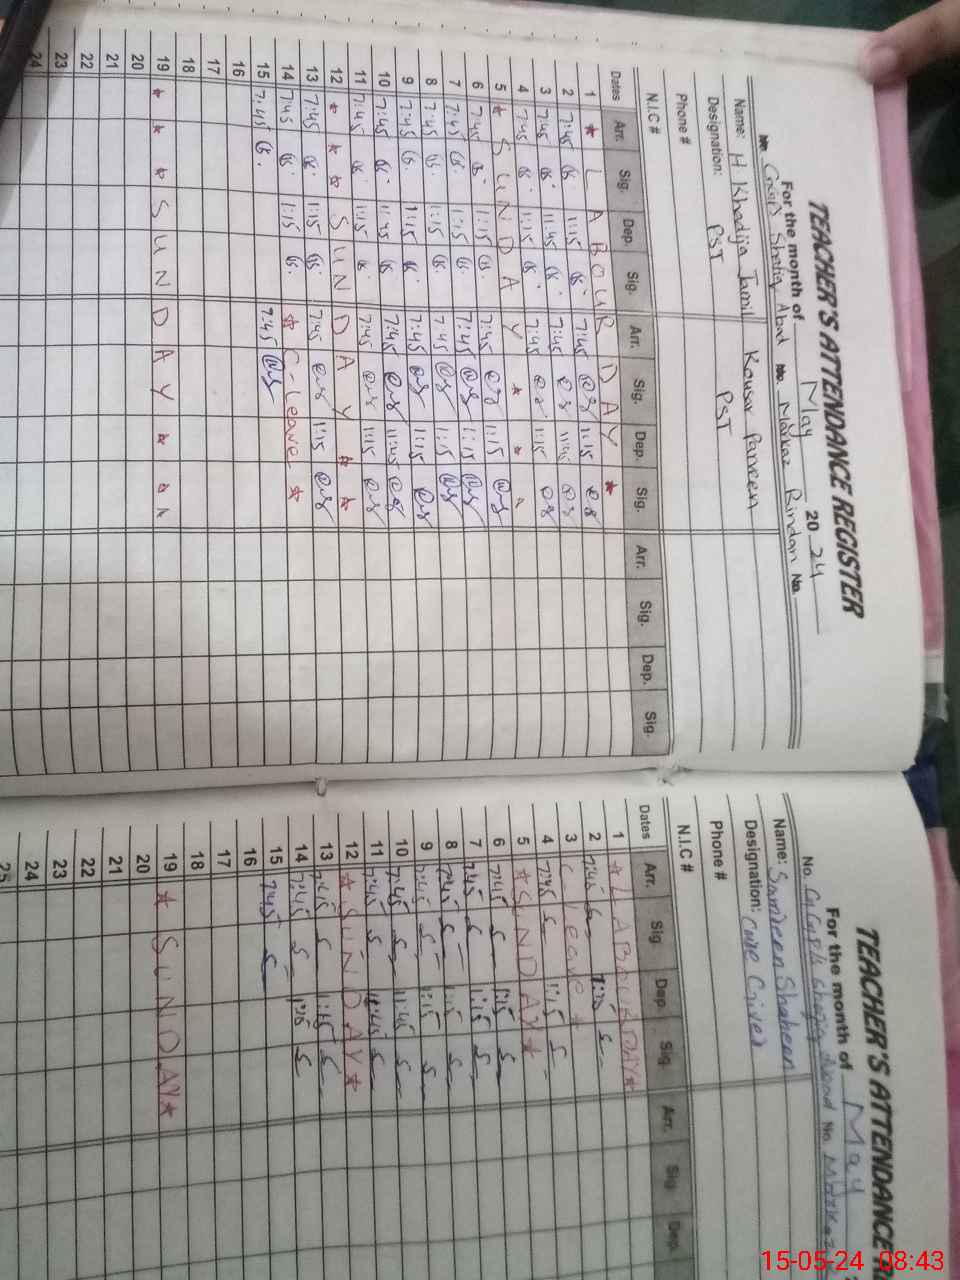 TEACHER'S ATTENDANCE REGISTER
For the month of May 2024
Shafiq Abad No. Markaz Bindan No.
Name: H Khadija Jamil Kousar Parveen
Designation: PST PST
Phone #
N.I.C #
Dates Arr. Sig. Dep. Sig. Arr. Sig. Dep. Sig. Arr. Sig. Dep. Sig.
1 * LABOUR DAY *
2 7:45 1:15 7:45 1:15
3 7:45 11:45 7:45 11:45
4 7:45 1:15 7:45 1:15
5 * SUNDAY * *
6 7:45 1:15 7:45 1:15
7 7:45 1:15 7:45 1:15
8 7:45 1:15 7:45 1:15
9 7:45 1:15 7:45 1:15
10 7:45 11:45 7:45 11:45
11 7:45 1:15 7:45 1:15
12 * * * SUNDAY * *
13 7:45 1:15 7:45 1:15
14 7:45 1:15 * C-Leave *
15 7:45 7:45
16
17
18
19 * * * SUNDAY * * *
20
21
22
23
24
TEACHER'S ATTENDANCE
For the month of May
No. Shafiq Abad No. Markaz
Name: Samreen Shaheen
Designation: Care Giver
Phone #
N.I.C #
Dates Arr. Sig. Dep. Sig. Arr. Sig. Dep.
1 * LABOUR DAY *
2 7:45
3 C-Leave *
4 7:45 S 1:15 S
5 * SUNDAY *
6 7:45 S 1:15 S
7 7:45 S 1:15 S
8 7:45 S 1:15 S
9 7:45 S 1:15 S
10 7:45 S 11:45 S
11 7:45 S 11:45 S
12 * SUNDAY *
13 7:45 S 1:15 S
14 7:45 S 1:15 S
15 7:45 S
16
17
18
19 * SUNDAY *
20
21
22
23
24
25
15-05-24 08:43